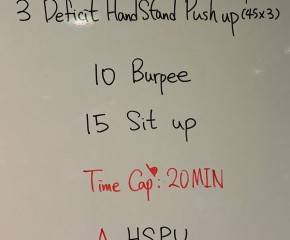 3 Deficit HandStand Push up (45x3)
10 Burpee
15 Sit up
Time Cap: 20MIN
A HSPU